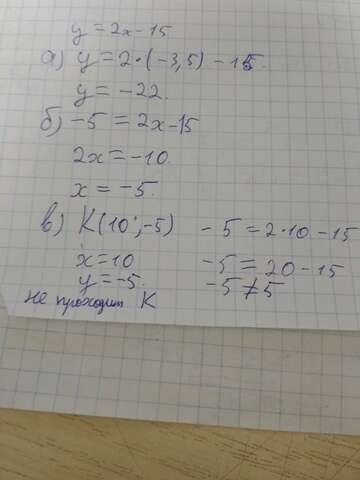 y = 2x - 15
а) y = 2 · (-3,5) - 15.
y = -22.
б) -5 = 2x - 15
2x = -10.
x = -5.
в) K(10; -5) -5 = 2·10 - 15
x = 10 -5 = 20 - 15
y = -5. -5 ≠ 5
не проходит K